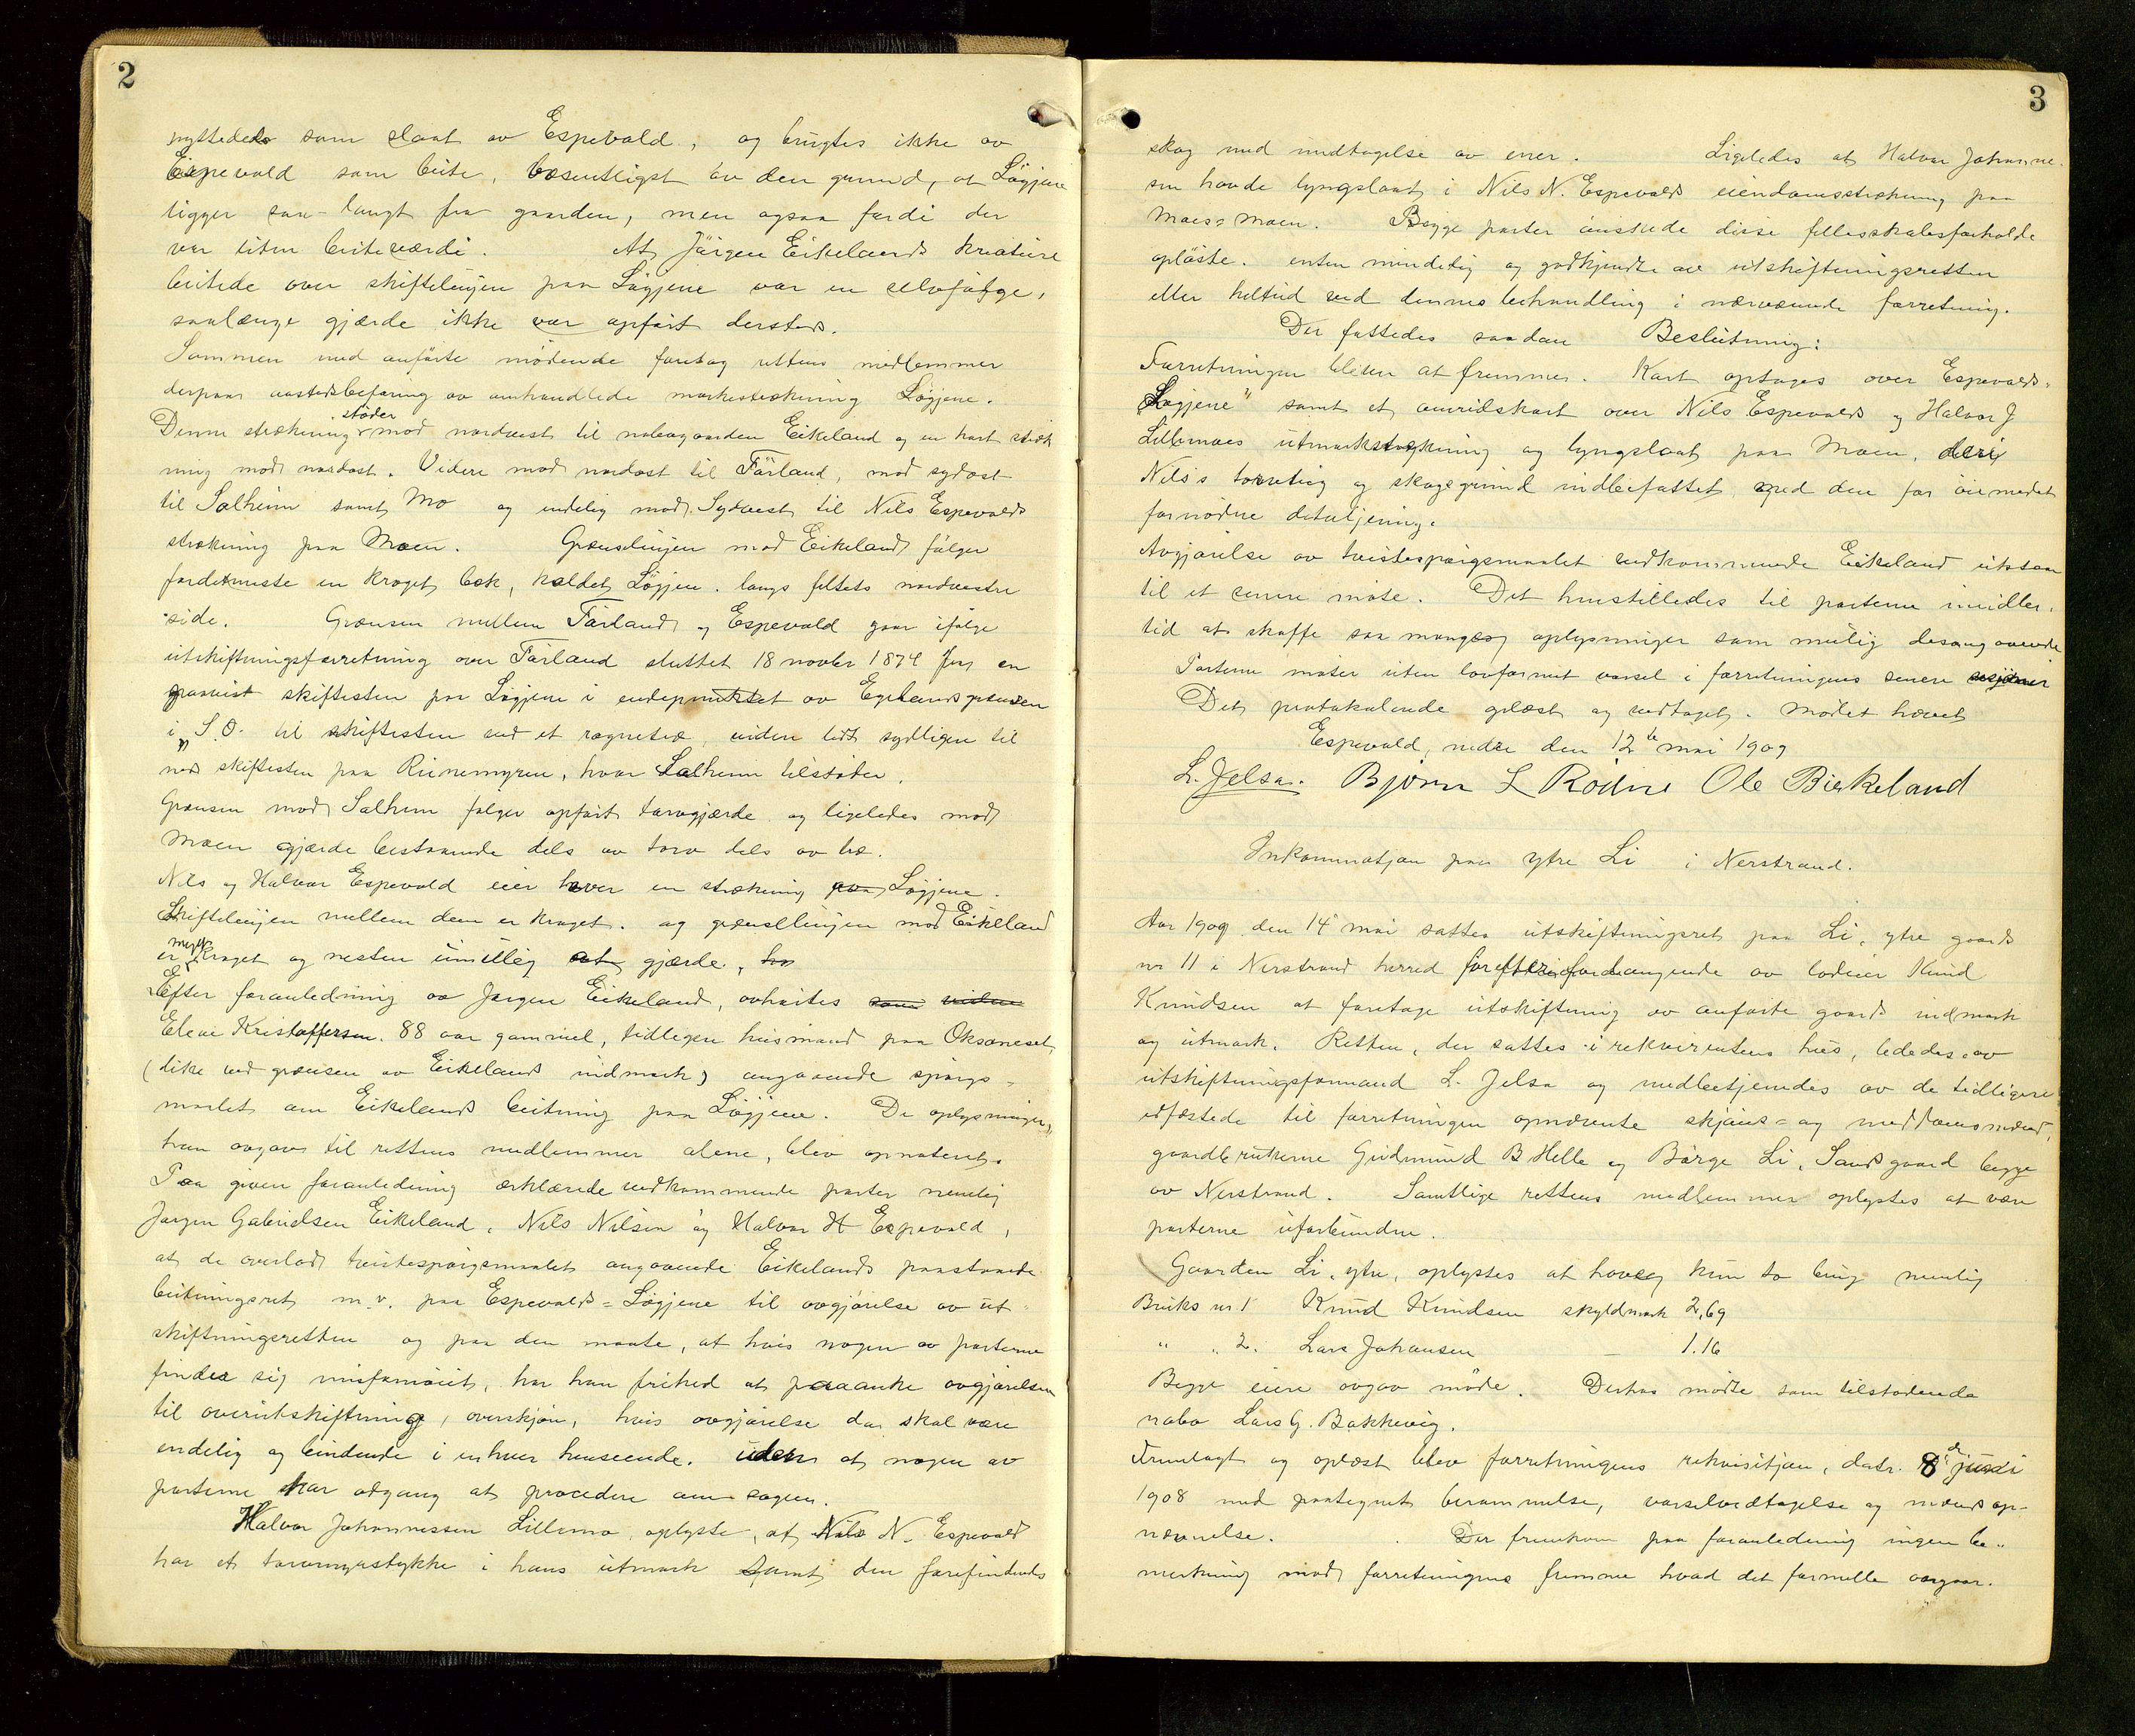 2
nyttedes som slaat av Espevold, og brugtes ikke av
Espevold som beite, væsentligst av den grund, at Løgjene
ligger saa langt fra gaarden, men ogsaa fordi der
var liten beiteværdi. At Jörgen Eikelands kreature
beitede over skiftelinjen paa Løgjene var en selvfølge,
saalænge gjærde ikke var opført dersteds.
Sammen med anførte mødende foretog rettens medlemmer
derpaa aastedsbefaring av omhandlede markestrækning Løgjene.
Denne strækning støder mod nordvest til nabogaarden Eikeland og en kort stræk
ning mod nordost. Videre mod nordost til Färland, mod sydost
til Salheim samt Mo og endelig mod Sydvest til Nils Espevolds
strækning paa Moen. Grænselinjen mod Eikeland følger
fordetmeste en kroget bæk, kaldet Løgjene. langs feltets nordvestre
side. Grænsen mellem Färland og Espevold gaar ifølge
utskiftningsforretning over Färland sluttet 18 novbr 1874 fra en
paavist skiftesten paa Løgjene i endepunktet av Egelandsgrænsen
i S.O. til skiftesten ved et rognetræ, videre lidt sydligere til
ned skiftesten paa Rienemyren, hvor Salheim tilstøter.
Grænsen mod Salheim følger opført torvgjærde og ligeledes mod
Moen gjærde bestaaende dels av torv dels av træ.
Nils og Halvor Espevold eier hver en strækning paa Løgjene.
Skiftelinjen mellem dem er kroget. og grænsellinjen mod Eikeland
er meget kroget og nesten umulig at gjærde.
Efter foranledning av Jørgen Eikeland, avhørtes som vidne
Eleve Kristoffersen. 88 aar gammel, tidligere husmand paa Oksaneset,
(like ved grænsen av Eikelands indmark) angaaende spørgs-
maalet om Eikelands beitning paa Løgjene. De oplysninger,
han avgav til rettens medlemmer alene, blev opnoteret.
Paa given foranledning erklærede vedkommende parter nemlig
Jørgen Gabrielsen Eikeland, Nils Nilsen og Halvor H Espevold,
at de overlod tvistespørgsmaalet angaaende Eikelands paastaaede
beitningsret m.v. paa Espevolds-Løgjene til avgjørelse av ut-
skiftningsretten og paa den maate, at hvis nogen av parterne
finder sig misfornøiet, har han frihed at paaanke avgjørelsen
til overutskiftning, overskjøn, hvis avgjørelse da skal være
endelig og bindende i enhver henseende. uden at nogen av
parterne har adgang at procedere om sagen.
Halvor Johannessen Lillemo, oplyste, at Nils N. Espevold
har et torvmyrstykke i hans utmark samt den forefindendes
3
skog med undtagelse av ener. Ligeledes at Halvor Johanne-
sen havde lyngslaat i Nils N. Espevolds eiendomsstrækning paa
Moes-Moen. Begge parter ønskede disse fellesskabsforholde
opløste. enten mindelig og godkjendte av utskiftningsretten
eller heltud ved dennes behandling i nærværende forretning.
Der fattedes saadan Beslutning:
Forretningen bliver at fremme. Kart optages over Espevolds-
"Løgjene" samt et omridskart over Nils Espevolds og Halvor J
Lillemoes utmarkstrækning og lyngslaat paa Moen, deri
Nils's torvteig og skoggrund indbefattet med den for øiemedet
fornødne detaljering.
Avgjørelse av tvistespørgsmaalet vedkommende Eikeland utstaar
til et senere møte. Det henstilledes til parterne imidler-
tid at skaffe saa mange oplysninger som mulig desangaaende
Parterne møter uten lovformet varsel i forretningens senere
Det protokolerede oplæst og vedtaget. Mødet hævet
Espevold, nedre den 12te mai 1909
L. Jelsa. Bjørn L Rødne Ole Birkeland
Inkaminatjon paa ytre Li i Nerstrand.
Aar 1909 den 14 mai sattes utskiftningsret paa Li, ytre gaards
nr 11 i Nerstrand herred for efter forlangende av lodeier Knud
Knudsen at foretage utskiftning av anførte gaards indmark
og utmark. Retten, der sattes i rekvirentens hus, lededes av
utskiftningsformand L. Jelsa og medbetjenedes av de tidligere
edfæstede til forretningen opnævnte skjøns- og meddomsmænd,
gaardbrukerne Gudmund B Helle og Børge Li, Sandsgaard begge
av Nerstrand. Samtlige rettens medlemmer oplystes at være
parterne uforbundne.
Gaarden Li, ytre, oplystes at have kun to brug nemlig
Bruks nr 1 Knud Knudsen skyldmark 2,69
" " 2. Lars Johansen — 1.16
Begge eiere avgav møde. Derhos mødte som tilstødende
nabo Lars G. Bakkevig.
Fremlagt og oplæst blev forretningens rekvisitjon, datr. 8de juni
1908 med paategnet berammelse, varselvedtagelse og mændsop-
nævnelse. Der fremkom paa foranledning ingen be-
merkning mod forretningens fremme hvad det formelle angaar.